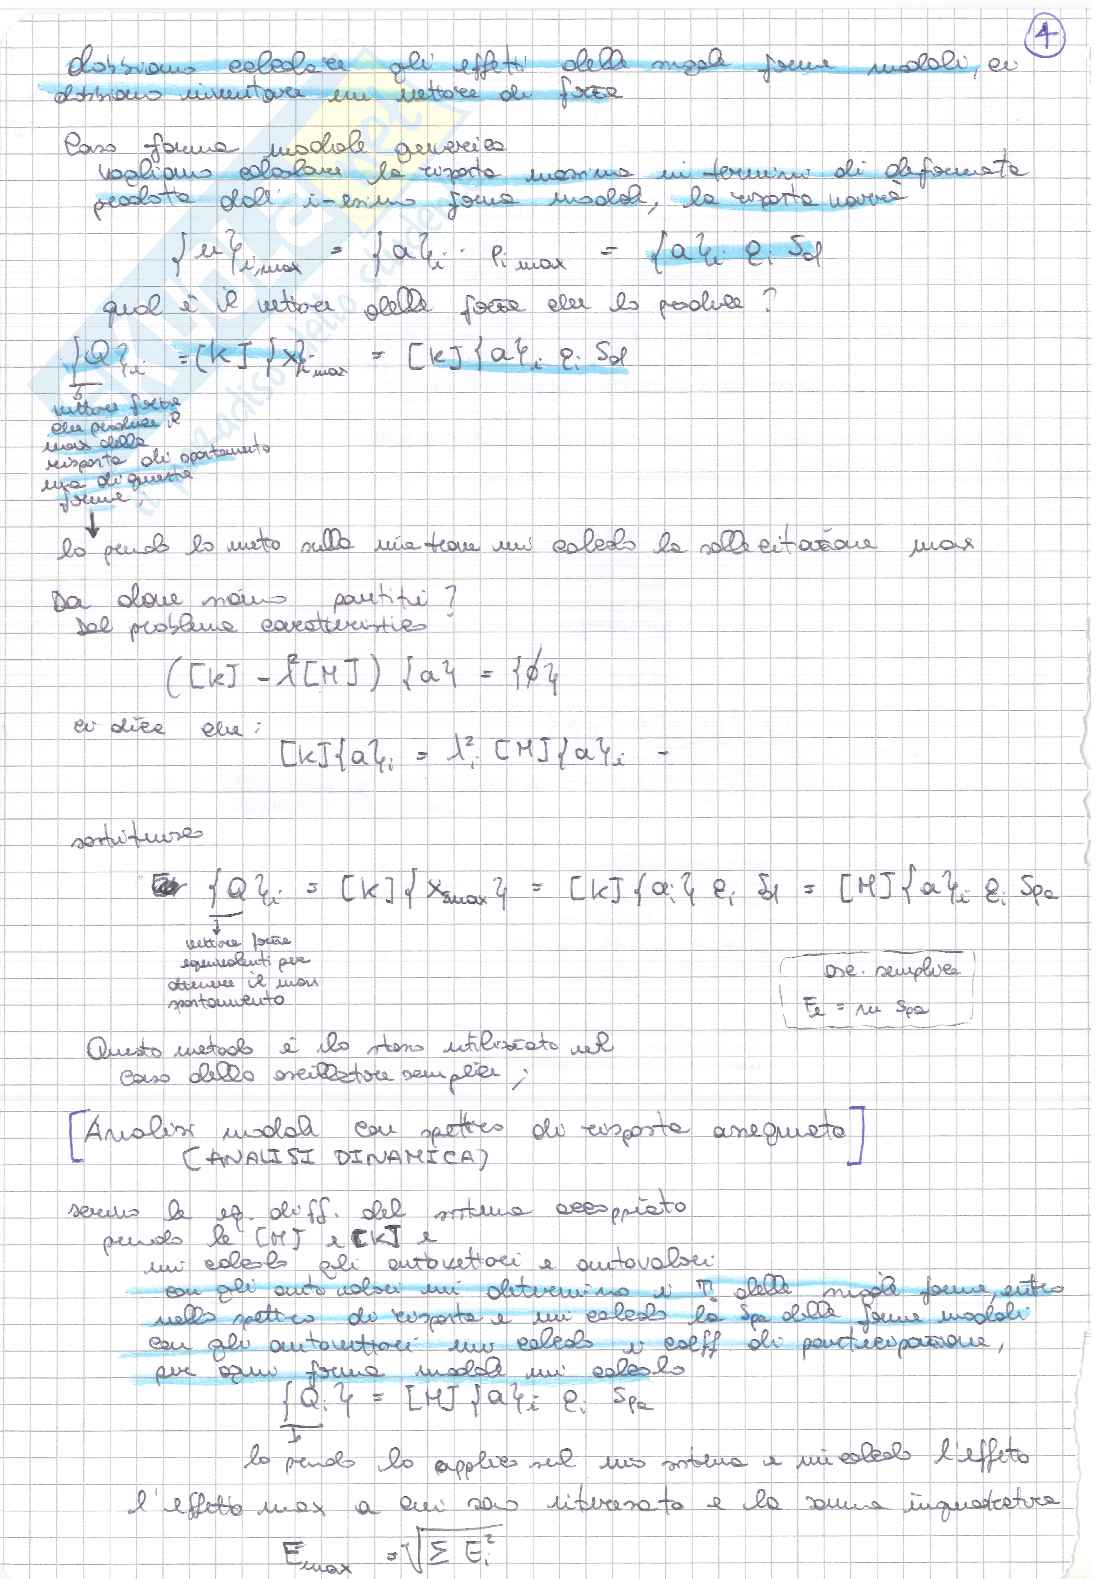 4
dobbiamo calcolare gli effetti delle singole forme modali, ci
dobbiamo inventare un vettore di forze
Caso forma modale generica
vogliamo calcolare la risposta massima in termini di deformata
prodotta dall' i-esima forma modale, la risposta varrà
{u}i,max = {a}i · pi max = {a}i gi Sd
qual è il vettore delle forze che lo produce?
{Q}i = [K] {x}i max = [K] {a}i gi Sd
vettore forze
che produce il
max della
risposta di spostamento
ma di questa
forma,
lo prendo lo metto sulla mia trave mi calcolo la sollecitazione max
Da dove siamo partiti?
Dal problema caratteristico
([K] - λ²[M]) {a} = {ϕ}
ci dice che:
[K]{a}i = λ²i [M]{a}i -
sostituisco
{Q}i = [K]{xmax} = [K]{ai} gi Sd = [M]{a}i gi Spa
vettore forze
equivalenti per
ottenere il max
spostamento
osc. semplice
Fe = m Spa
Questo metodo è lo stesso utilizzato nel
caso dello oscillatore semplice;
[Analisi modale con spettro di risposta assegnato]
(ANALISI DINAMICA)
scrivo le eq. diff. del sistema accoppiato
prendo le [M] e [K] e
mi calcolo gli autovettori e autovalori
con gli autovalori mi determino i Ti delle singole forme, entro
nello spettro di risposta e mi calcolo la Spa delle forme modali
con gli autovettori mi calcolo i coeff di partecipazione,
per ogni forma modale mi calcolo
{Qi} = [M] {a}i gi Spa
lo prendo lo applico sul mio sistema e mi calcolo l'effetto
l'effetto max a cui sono interessato e la somma in quadratura
Emax = √Σ Ei²